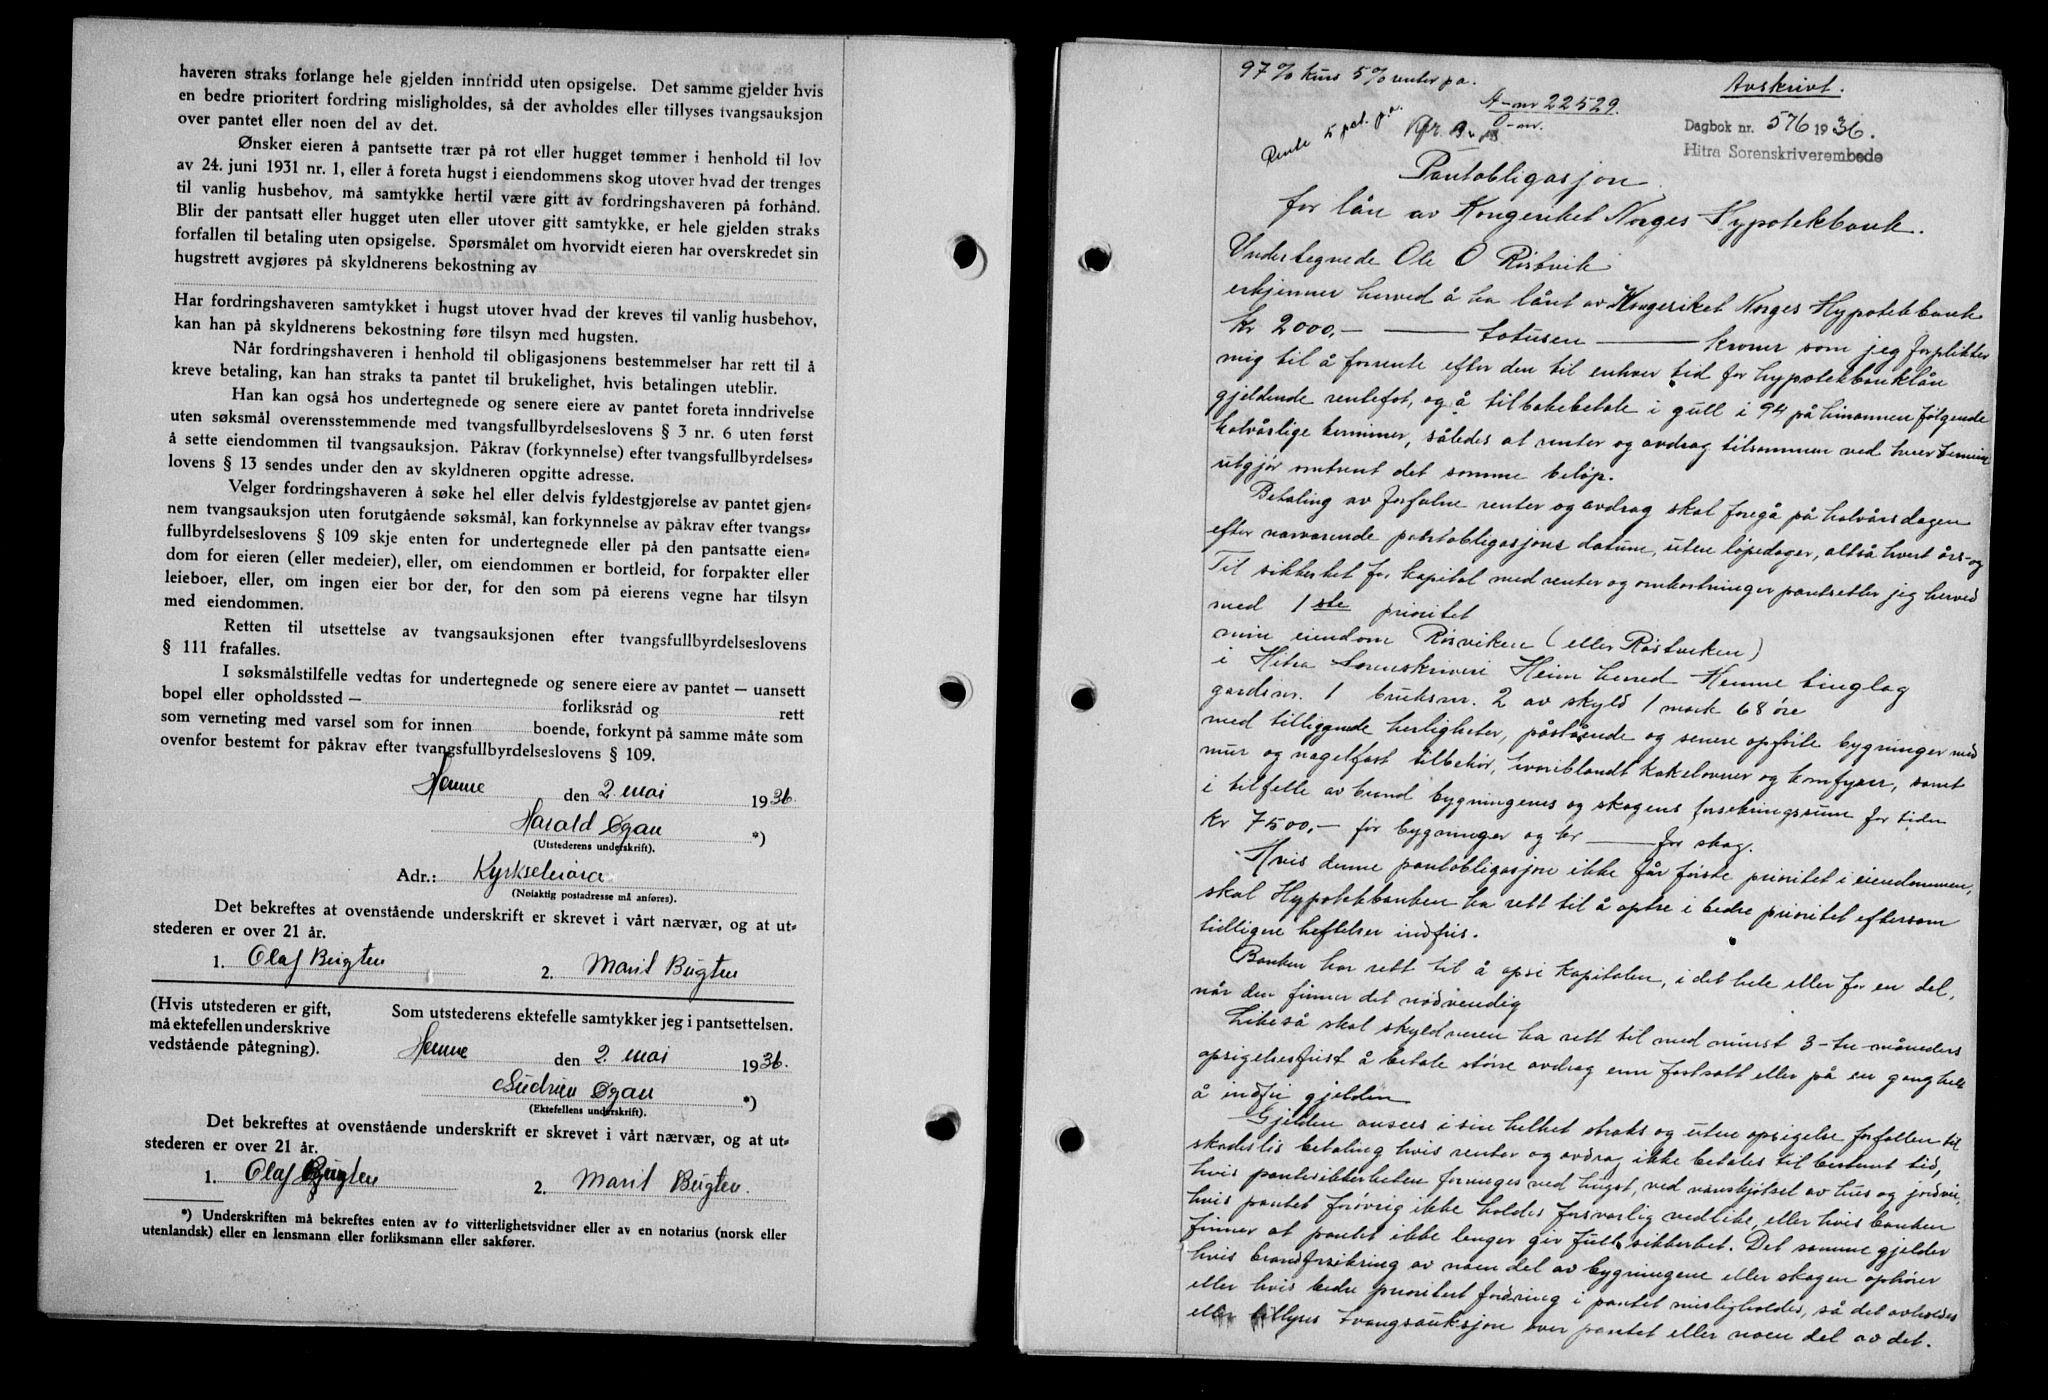 haveren straks forlange hele gjelden innfridd uten opsigelse. Det samme gjelder hvis
en bedre prioritert fordring misligholdes, så der avholdes eller tillyses tvangsauksjon
over pantet eller noen del av det.
Ønsker eieren å pantsette trær på rot eller hugget tømmer i henhold til lov
av 24. juni 1931 nr. 1, eller å foreta hugst i eiendommens skog utover hvad der trenges
til vanlig husbehov, må samtykke hertil være gitt av fordringshaveren på forhånd.
Blir der pantsatt eller hugget uten eller utover gitt samtykke, er hele gjelden straks
forfallen til betaling uten opsigelse. Spørsmålet om hvorvidt eieren har overskredet sin
hugstrett avgjøres på skyldnerens bekostning av
Har fordringshaveren samtykket i hugst utover hvad der kreves til vanlig husbehov,
kan han på skyldnerens bekostning føre tilsyn med hugsten.
Når fordringshaveren i henhold til obligasjonens bestemmelser har rett til å
kreve betaling, kan han straks ta pantet til brukelighet, hvis betalingen uteblir.
Han kan også hos undertegnede og senere eiere av pantet foreta inndrivelse
uten søksmål overensstemmende med tvangsfullbyrdelseslovens § 3 nr. 6 uten først
å sette eiendommen til tvangsauksjon. Påkrav (forkynnelse) efter tvangsfullbyrdelses=
lovens § 13 sendes under den av skyldneren opgitte adresse.
Velger fordringshaveren å søke hel eller delvis fyldestgjørelse av pantet gjen=
nem tvangsauksjon uten forutgående søksmål, kan forkynnelse av påkrav efter tvangs=
fullbyrdelseslovens § 109 skje enten for undertegnede eller på den pantsatte eien=
dom for eieren (eller medeier), eller, om eiendommen er bortleid, for forpakter eller
leieboer, eller, om ingen eier bor der, for den som på eierens vegne har tilsyn
med eiendommen.
Retten til utsettelse av tvangsauksjonen efter tvangsfullbyrdelseslovens
§ 111 frafalles.
I søksmålstilfelle vedtas for undertegnede og senere eiere av pantet — uansett
bopel eller opholdssted — forliksråd og rett
som verneting med varsel som for innen boende, forkynt på samme måte som
ovenfor bestemt for påkrav efter tvangsfullbyrdelseslovens § 109.
Hemne den 2. mai 1936.
Harald Øgan *)
(Utstederens underskrift).
Adr.: Kyrksæterøra
(Nøiaktig postadresse må anføres).
Det bekreftes at ovenstående underskrift er skrevet i vårt nærvær, og at ut=
stederen er over 21 år.
1. Olaf Bugten 2. Marit Bugten
(Hvis utstederen er gift,
må ektefellen underskrive
vedstående påtegning).
Som utstederens ektefelle samtykker jeg i pantsettelsen.
Hemne den 2. mai 1936.
Gudrun Øgan *)
(Ektefellens underskrift).
Det bekreftes at ovenstående underskrift er skrevet i vårt nærvær, og at ut=
stederen er over 21 år.
1. Olaf Bugten 2. Marit Bugten.
*) Underskriften må bekreftes enten av to vitterlighetsvidner eller av en notarius (norsk eller
utenlandsk) eller en lensmann eller forliksmann eller sakfører.
97 % kurs 5 % renter p a.
Avskrivt.
A-nr 22529.
O-nr.
Rente 5 pct. p.a.
Dagbok nr. 576 1936.
Hitra Sorenskriverembede
Pantobligasjon
for lån av Kongeriket Norges Hypotekbank.
Undertegnede Ole O Røstvik
erkjenner herved å ha lånt av Kongeriket Norges Hypotekbank
kr 2000,- — totusen — kroner som jeg forplikter
mig til å forrente efter den til enhver tid for hypotekbanklån
gjeldende rentefot, og å tilbakebetale i gull i 94 på hinannen følgende
halvårlige terminer, således at renter og avdrag tilsammen ved hver termin
utgjør omtrent det samme beløp.
Betaling av forfalne renter og avdrag skal foregå på halvårsdagen
efter nærværende pantobligasjons datum, uten løpedager, altså hvert års- og
Til sikkerhet for kapital med renter og omkostninger pantsetter jeg herved
med 1ste prioritet
min eiendom Røsviken (eller Røstviken)
i Hitra Sorenskriveri Heim herred Hemne tinglag
gårdsnr. 1 bruksnr. 2 av skyld 1 mark 68 øre
med tilliggende herligheter, påstående og senere opførte bygninger med
mur og nagelfast tilbehør, hvoriblandt kakelovner og komfyrer, samt
i tilfelle av brand bygningenes og skogens forsikringssum for tiden
kr 7500,- for bygninger og kr — for skog.
Hvis denne pantobligasjon ikke får første prioritet i eiendommen,
skal Hypotekbanken ha rett til å optre i bedre prioritet eftersom
tidligere heftelser indfris.
Banken har rett til å opsi kapitalen, i det hele eller for en del,
når den finner det nødvendig
Likeså skal skyldneren ha rett til med minst 3-tre-måneders
opsigelsesfrist å betale større avdrag enn fastsatt eller på en gang hele
å indfri gjelden
Gjelden anses i sin helhet straks og uten opsigelse forfallen til
skadesløs betaling hvis renter og avdrag ikke betales til bestemt tid,
hvis pantesikkerheten forringes ved hugst, ved vanskjøtsel av hus og jordvei,
hvis pantet forøvrig ikke holdes forsvarlig vedlike, eller hvis banken
finner at pantet ikke lenger gir full sikkerhet. Det samme gjelder
hvis brandforsikring av noen del av bygningene eller skogen ophører
eller hvis bedre prioritert fordring i pantet misligholdes, så det avholdes
eller tillyses tvangsauksjon over pantet eller noen del av det.